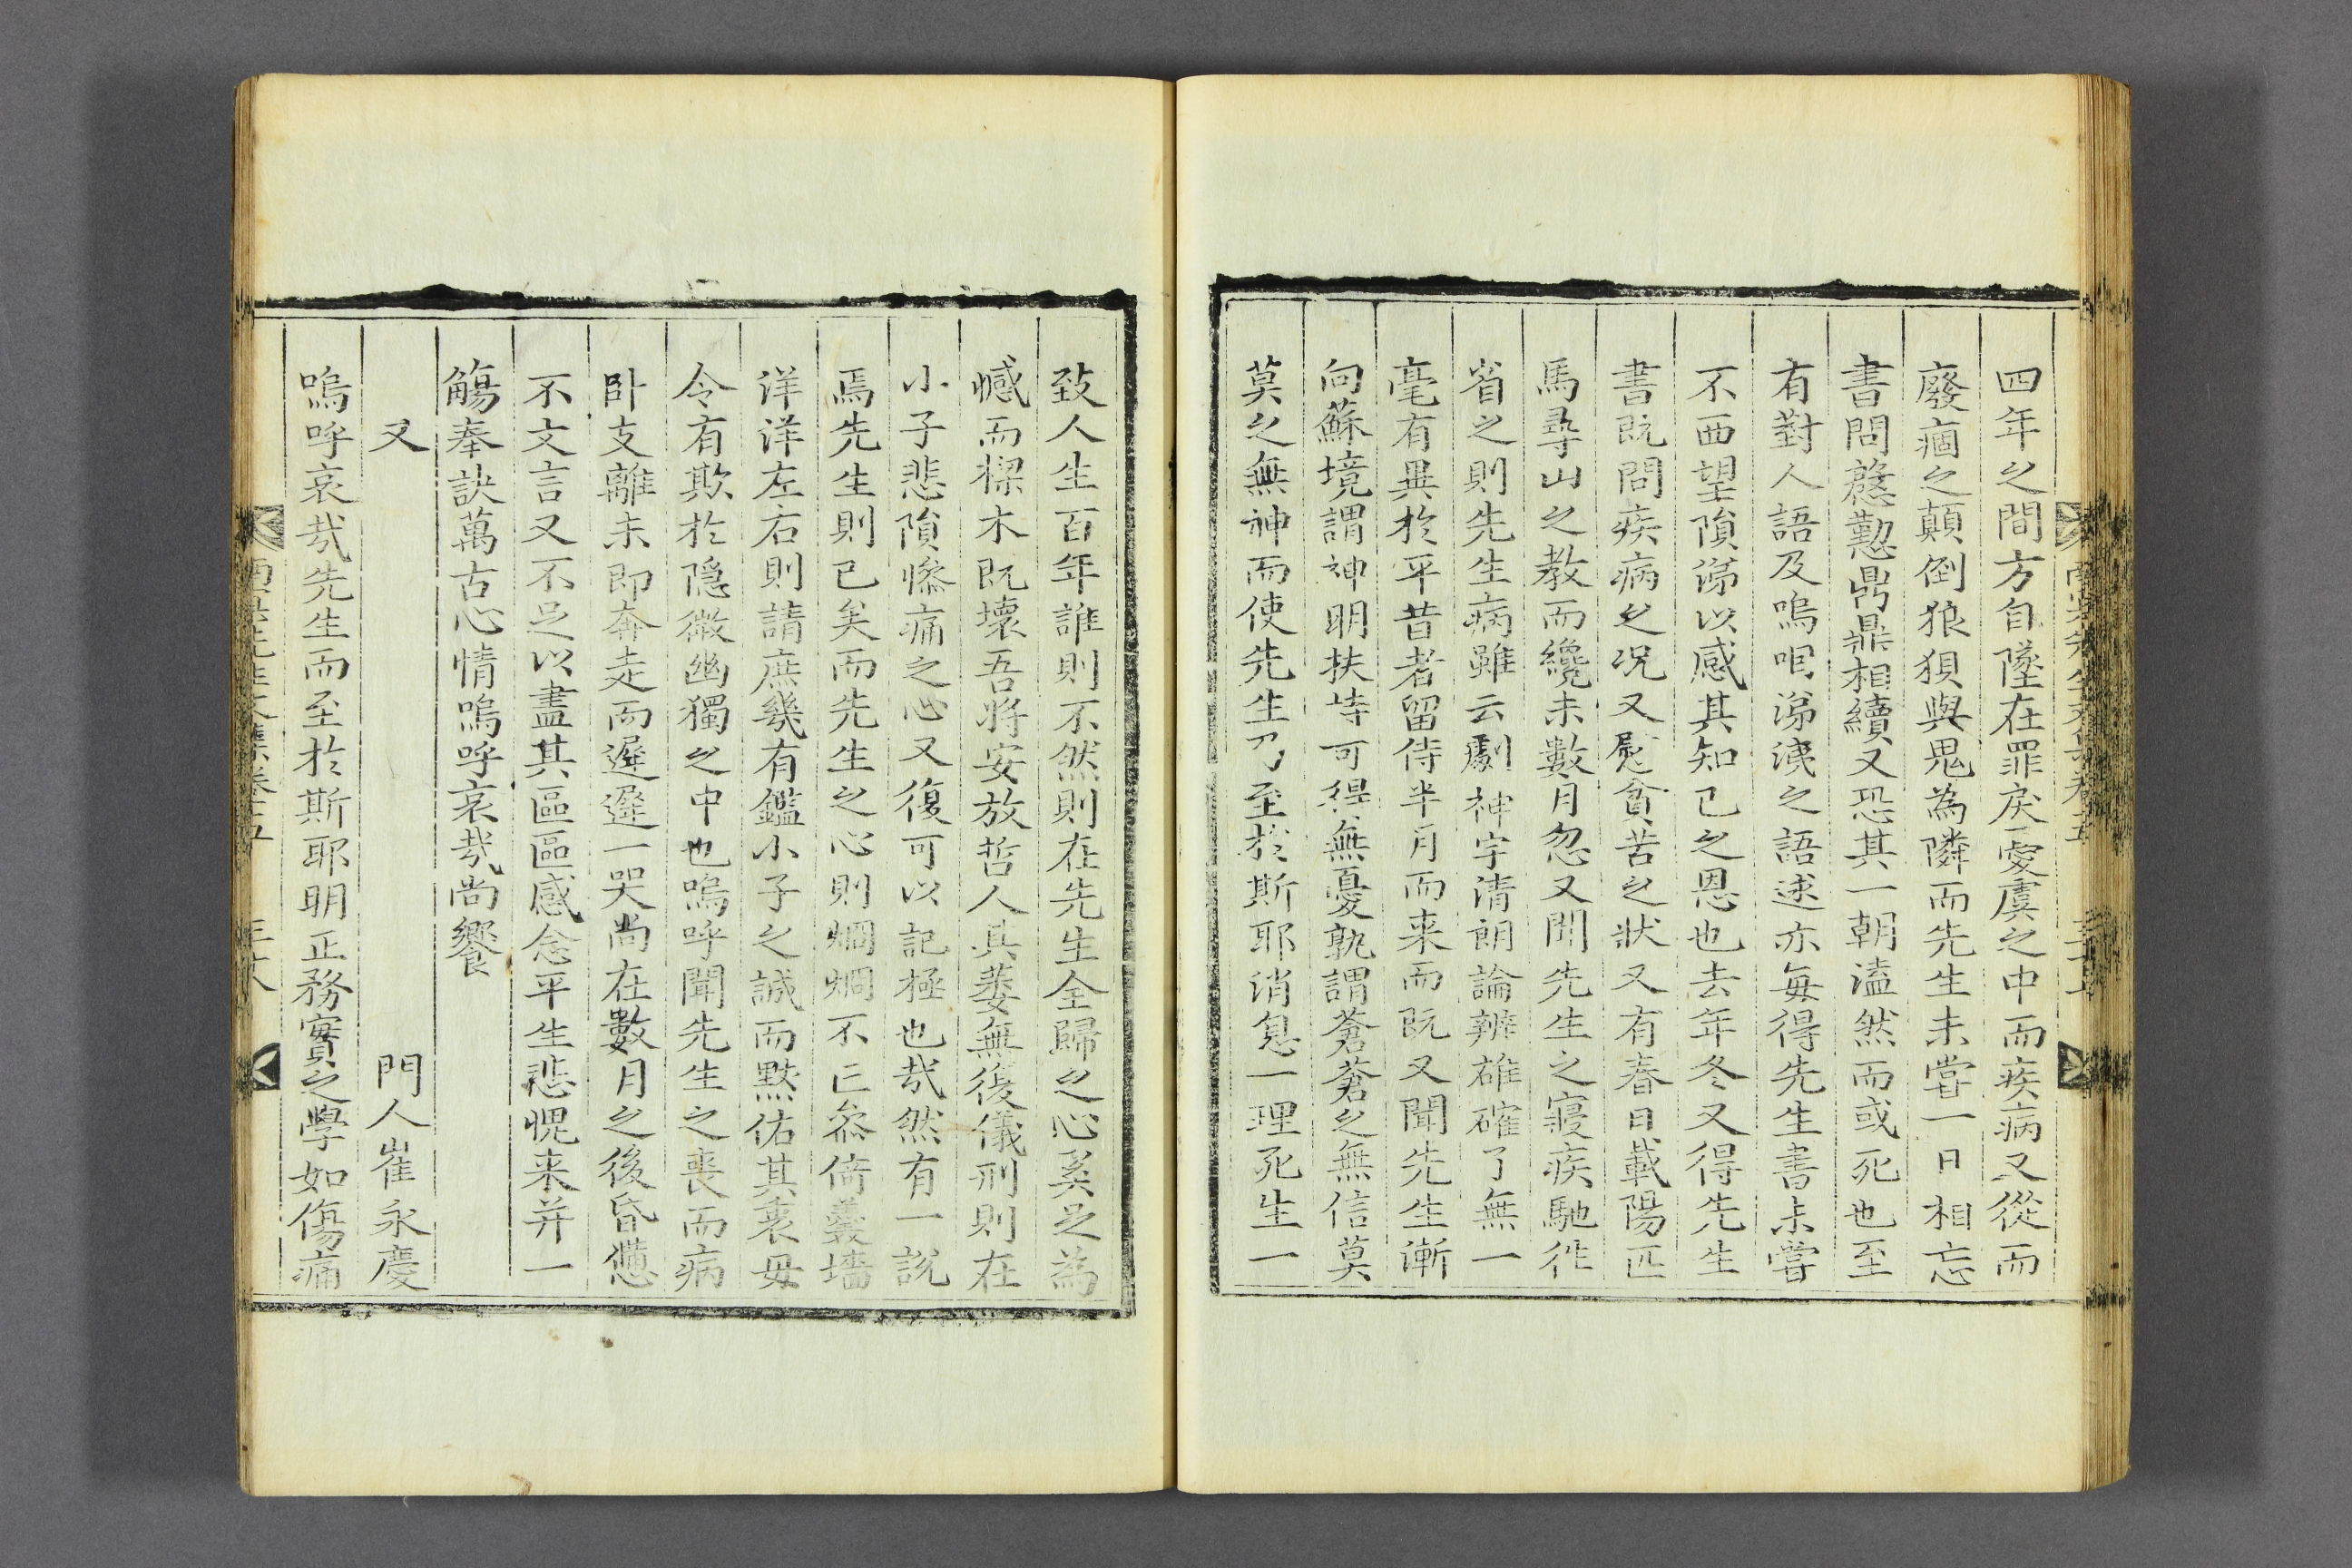 四年之間方自墜在罪戾憂虞之中而疾病又從而
廢痼之顛倒狼狽與鬼為隣而先生未嘗一日相忘
書問慇懃鼎鼎相續又恐其一朝溘然而或死也至
有對人語及嗚咽涕洟之語逑亦每得先生書未嘗
不西望隕涕以感其知己之恩也去年冬又得先生
書既問疾病之况又慰貧苦之狀又有春日載陽匹
馬尋山之教而纔未數月忽又聞先生之寢疾馳往
省之則先生病雖云劇神宇清朗論辨雄確了無一
毫有異於平昔者留侍半月而来而既又聞先生漸
向蘇境謂神明扶持可得無憂孰謂蒼蒼之無信莫
莫之無神而使先生乃至於斯耶消息一理死生一
致人生百年誰則不然則在先生全歸之心奚足為
憾而樑木既壞吾將安放哲人其萎無復儀刑則在
小子悲隕慘痛之心又復可以記極也哉然有一說
焉先生則已矣而先生之心則烱烱不亡叅倚羹墻
洋洋左右則請庶幾有鑑小子之誠而黙佑其衷毋
令有欺於隠微幽獨之中也嗚呼聞先生之喪而病
卧支離未即奔走而遲遲一哭尚在數月之後昏憊
不文言又不足以盡其區區感念平生悲愰来并一
觴奉訣萬古心情嗚呼哀哉尚饗
又
門人崔永慶
嗚呼哀哉先生而至於斯耶明正務實之學如傷痛